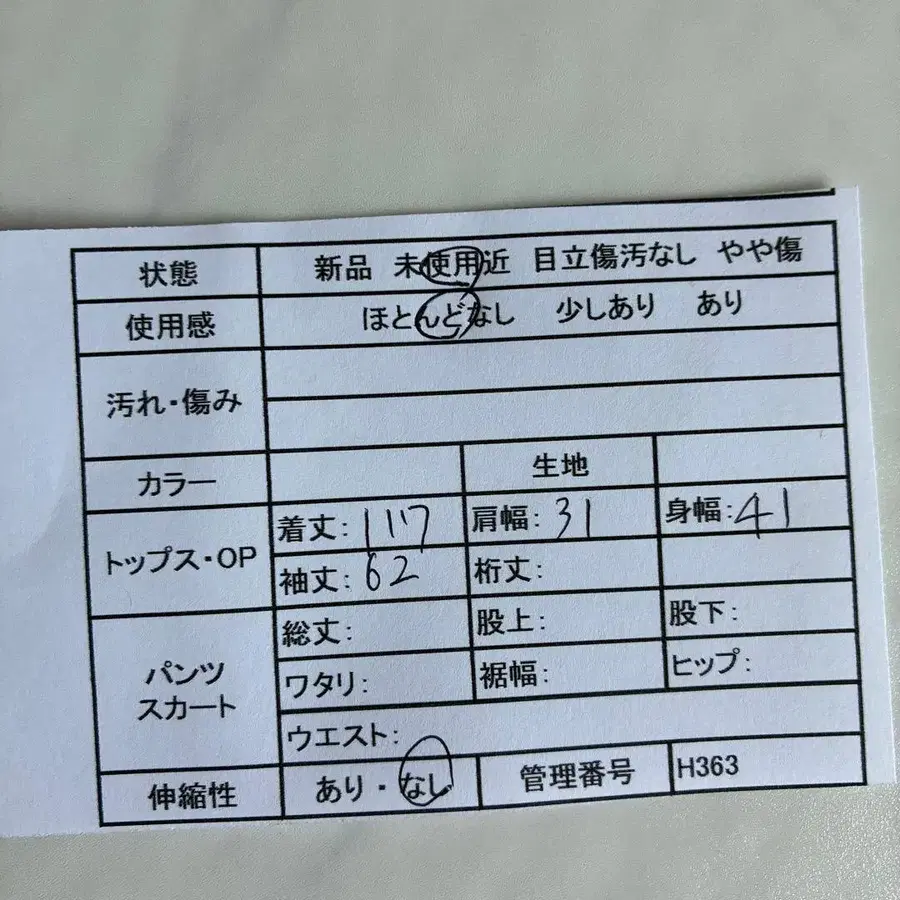 状態 新品 未使用近 目立傷汚なし やや傷
使用感 ほとんどなし 少しあり あり
汚れ・傷み
カラー 生地
トップス・OP 着丈:117 肩幅:31 身幅:41
袖丈:62 裄丈:
パンツ
スカート
総丈: 股上: 股下:
ワタリ: 裾幅: ヒップ:
ウエスト:
伸縮性 あり・なし 管理番号 H363